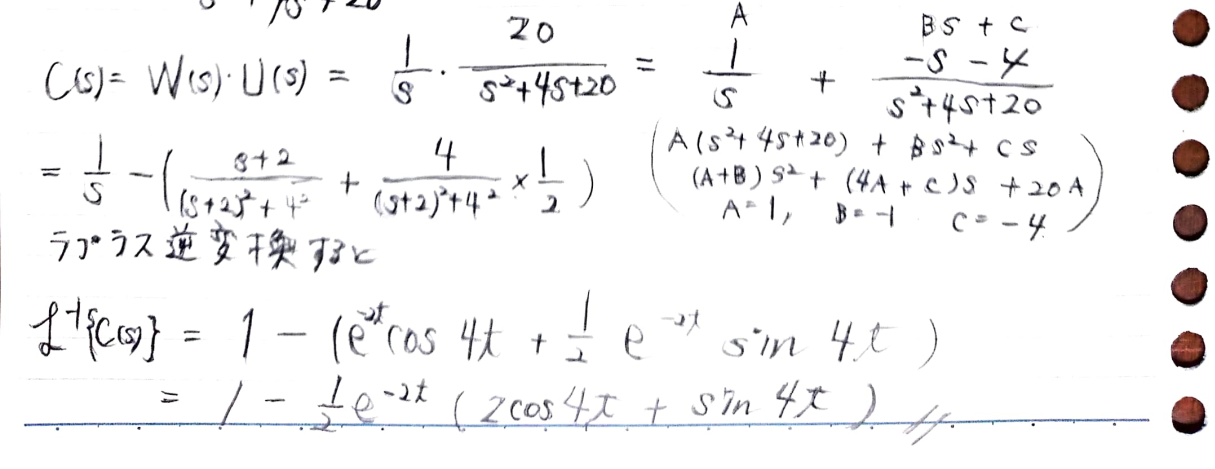 C(s)= W(s)・U(s) = 1/s ・ 20/(s²+4s+20) = A 1/s + Bs + C (-s-4)/(s²+4s+20)
= 1/s - ( (s+2)/((s+2)²+4²) + 4/((s+2)²+4²) × 1/2 )
( A(s²+4s+20) + Bs²+ Cs
(A+B)s² + (4A+C)s + 20A
A=1, B=-1 C=-4 )
ラプラス逆変換すると
ℒ⁻¹{C(s)} = 1 - (e^-2t cos 4t + 1/2 e^-2t sin 4t )
= 1 - 1/2 e^-2t ( 2cos4t + sin 4t ) //